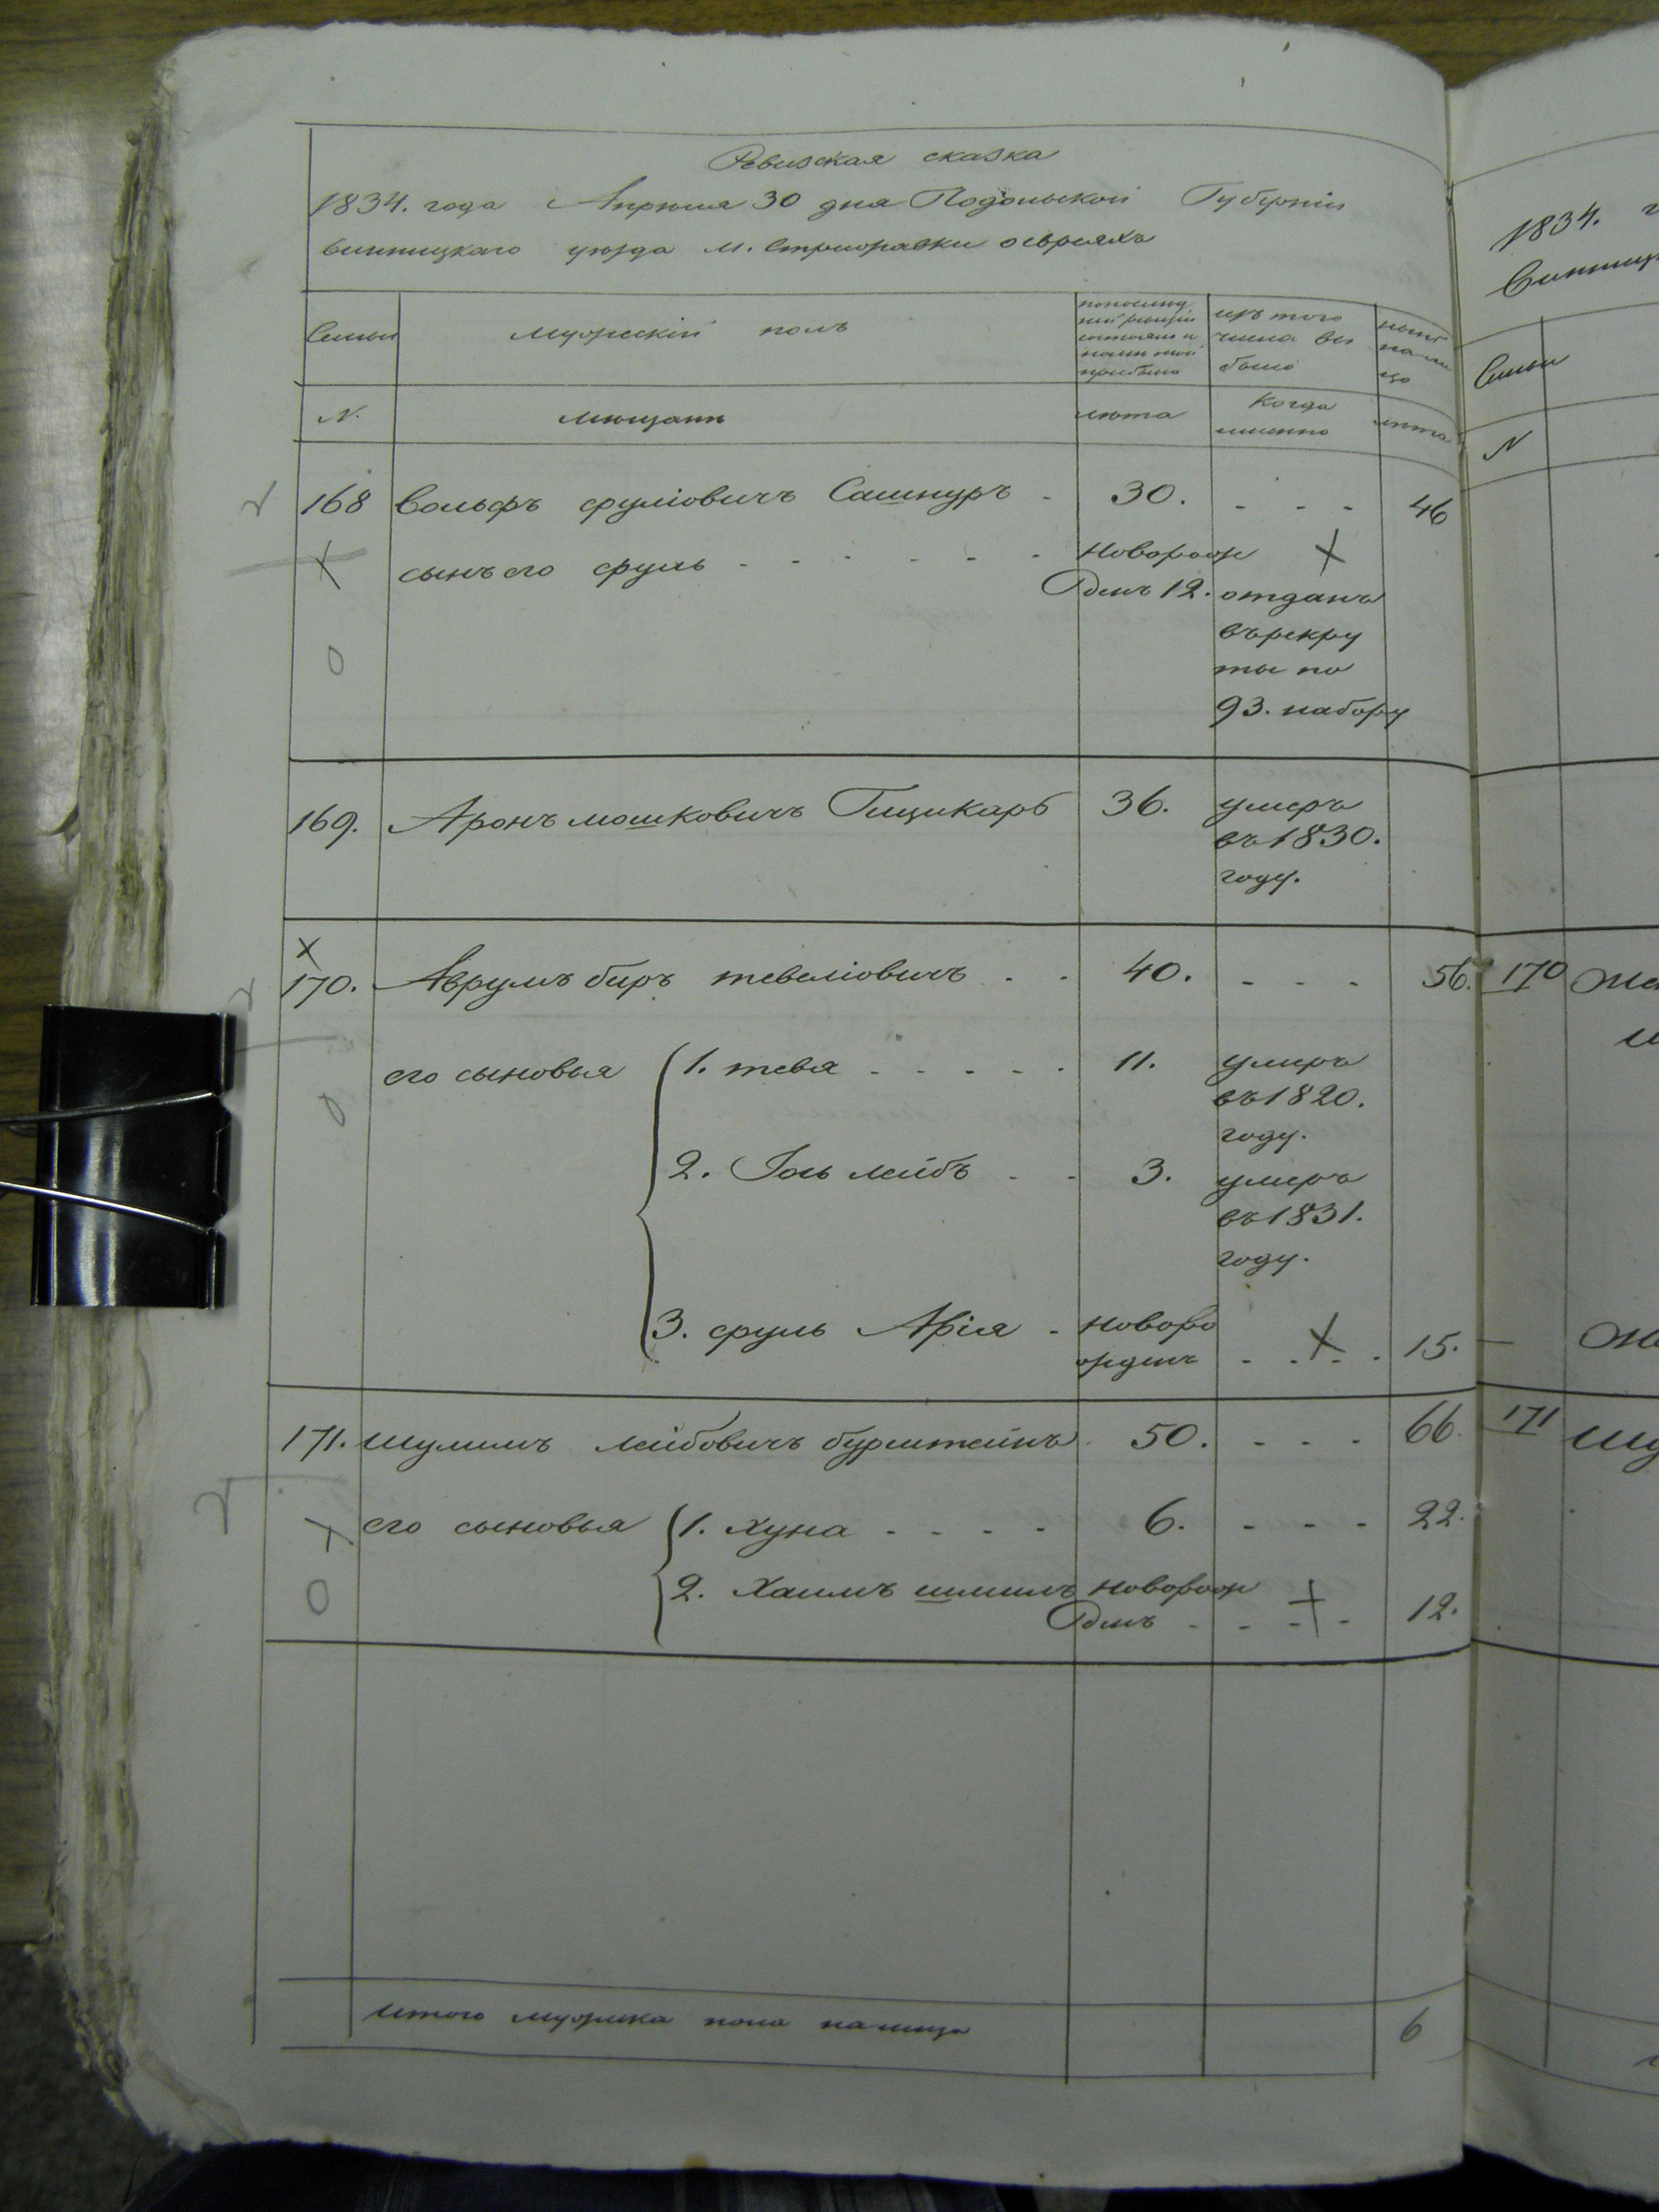 Ревизская сказка
1834. года Апреля 30 дня Подольской Губерніи
винницкаго уѣзда м. Стрижавки о евреяхъ
Семьи
мужескій полъ
изъ того
числа вы
было
N.
мѣщанъ
лѣта
Когда
именно
лѣта
168 Вольфъ сруліовичъ Сашнуръ - 30. - - - 46
сынъ его сруль - - - - - новорож
денъ 12. отданъ
въ рекру
ты по
93. набору
169. Аронъ мошковичъ 36. умеръ
въ 1830.
году.
170. Аврумъ беръ тевеліовичъ - - 40. - - - 56.
его сыновья 1. тевя - - - - - 11. умеръ
въ 1820.
году.
2. Іось лейбъ - - 3. умеръ
въ 1831.
году.
3. сруль Арія - новоро
жденъ - - - - 15.
171. шулимъ лейбовичъ бурштейнъ 50. - - - 66.
его сыновья 1. хуна - - - - 6. - - - 22.
2. Хаимъ шлимъ новорож
денъ - - - - 12.
итого мужеска пола налицо 6
1834.
Семьи
N
170
171